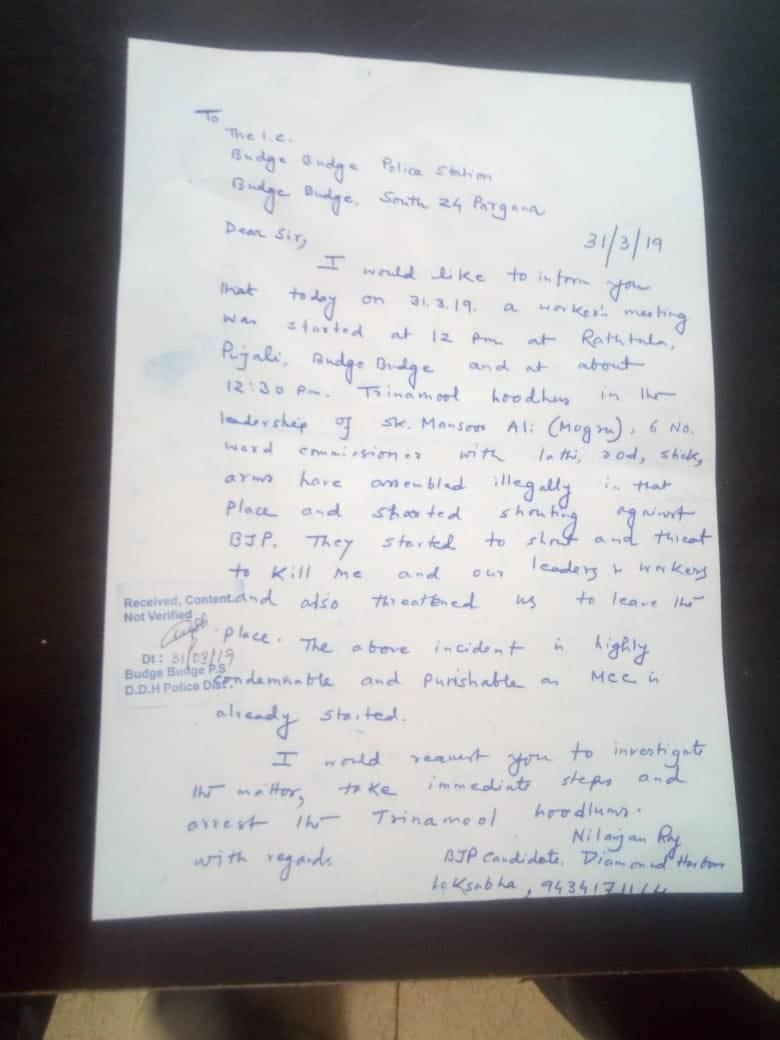 To
The I.C.
Budge Budge Police Station
Budge Budge, South 24 Pargana
31/3/19
Dear Sir,
I would like to inform you
that today on 31.3.19. a worker's meeting
was started at 12 pm at Rathtala,
Pujali, Budge Budge and at about
12:30 pm. Trinamool hoodlums in the
leadership of Sk. Mansoor Ali (Mogru), 6 No.
ward commissioner with lathi, rod, stick,
arms have assembled illegally in that
place and started shouting against
BJP. They started to shout and threat
to kill me and our leaders & workers
and also threatened us to leave the
place. The above incident is highly
condemnable and punishable as MCC is
already started.
I would request you to investigate
the matter, take immediate steps and
arrest the Trinamool hoodlums.
with regards
Nilanjan Roy
BJP candidate, Diamond Harbour
Loksabha,
Received, Content
Not Verified
Dt: 31/03/19
Budge Budge P.S
D.D.H Police Dist.